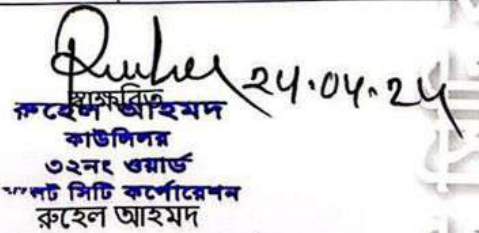 Ruhel 24.04.24
স্বাক্ষরিত
রুহেল আহমদ
কাউন্সিলর
৩২নং ওয়ার্ড
সিটি কর্পোরেশন
রুহেল আহমদ